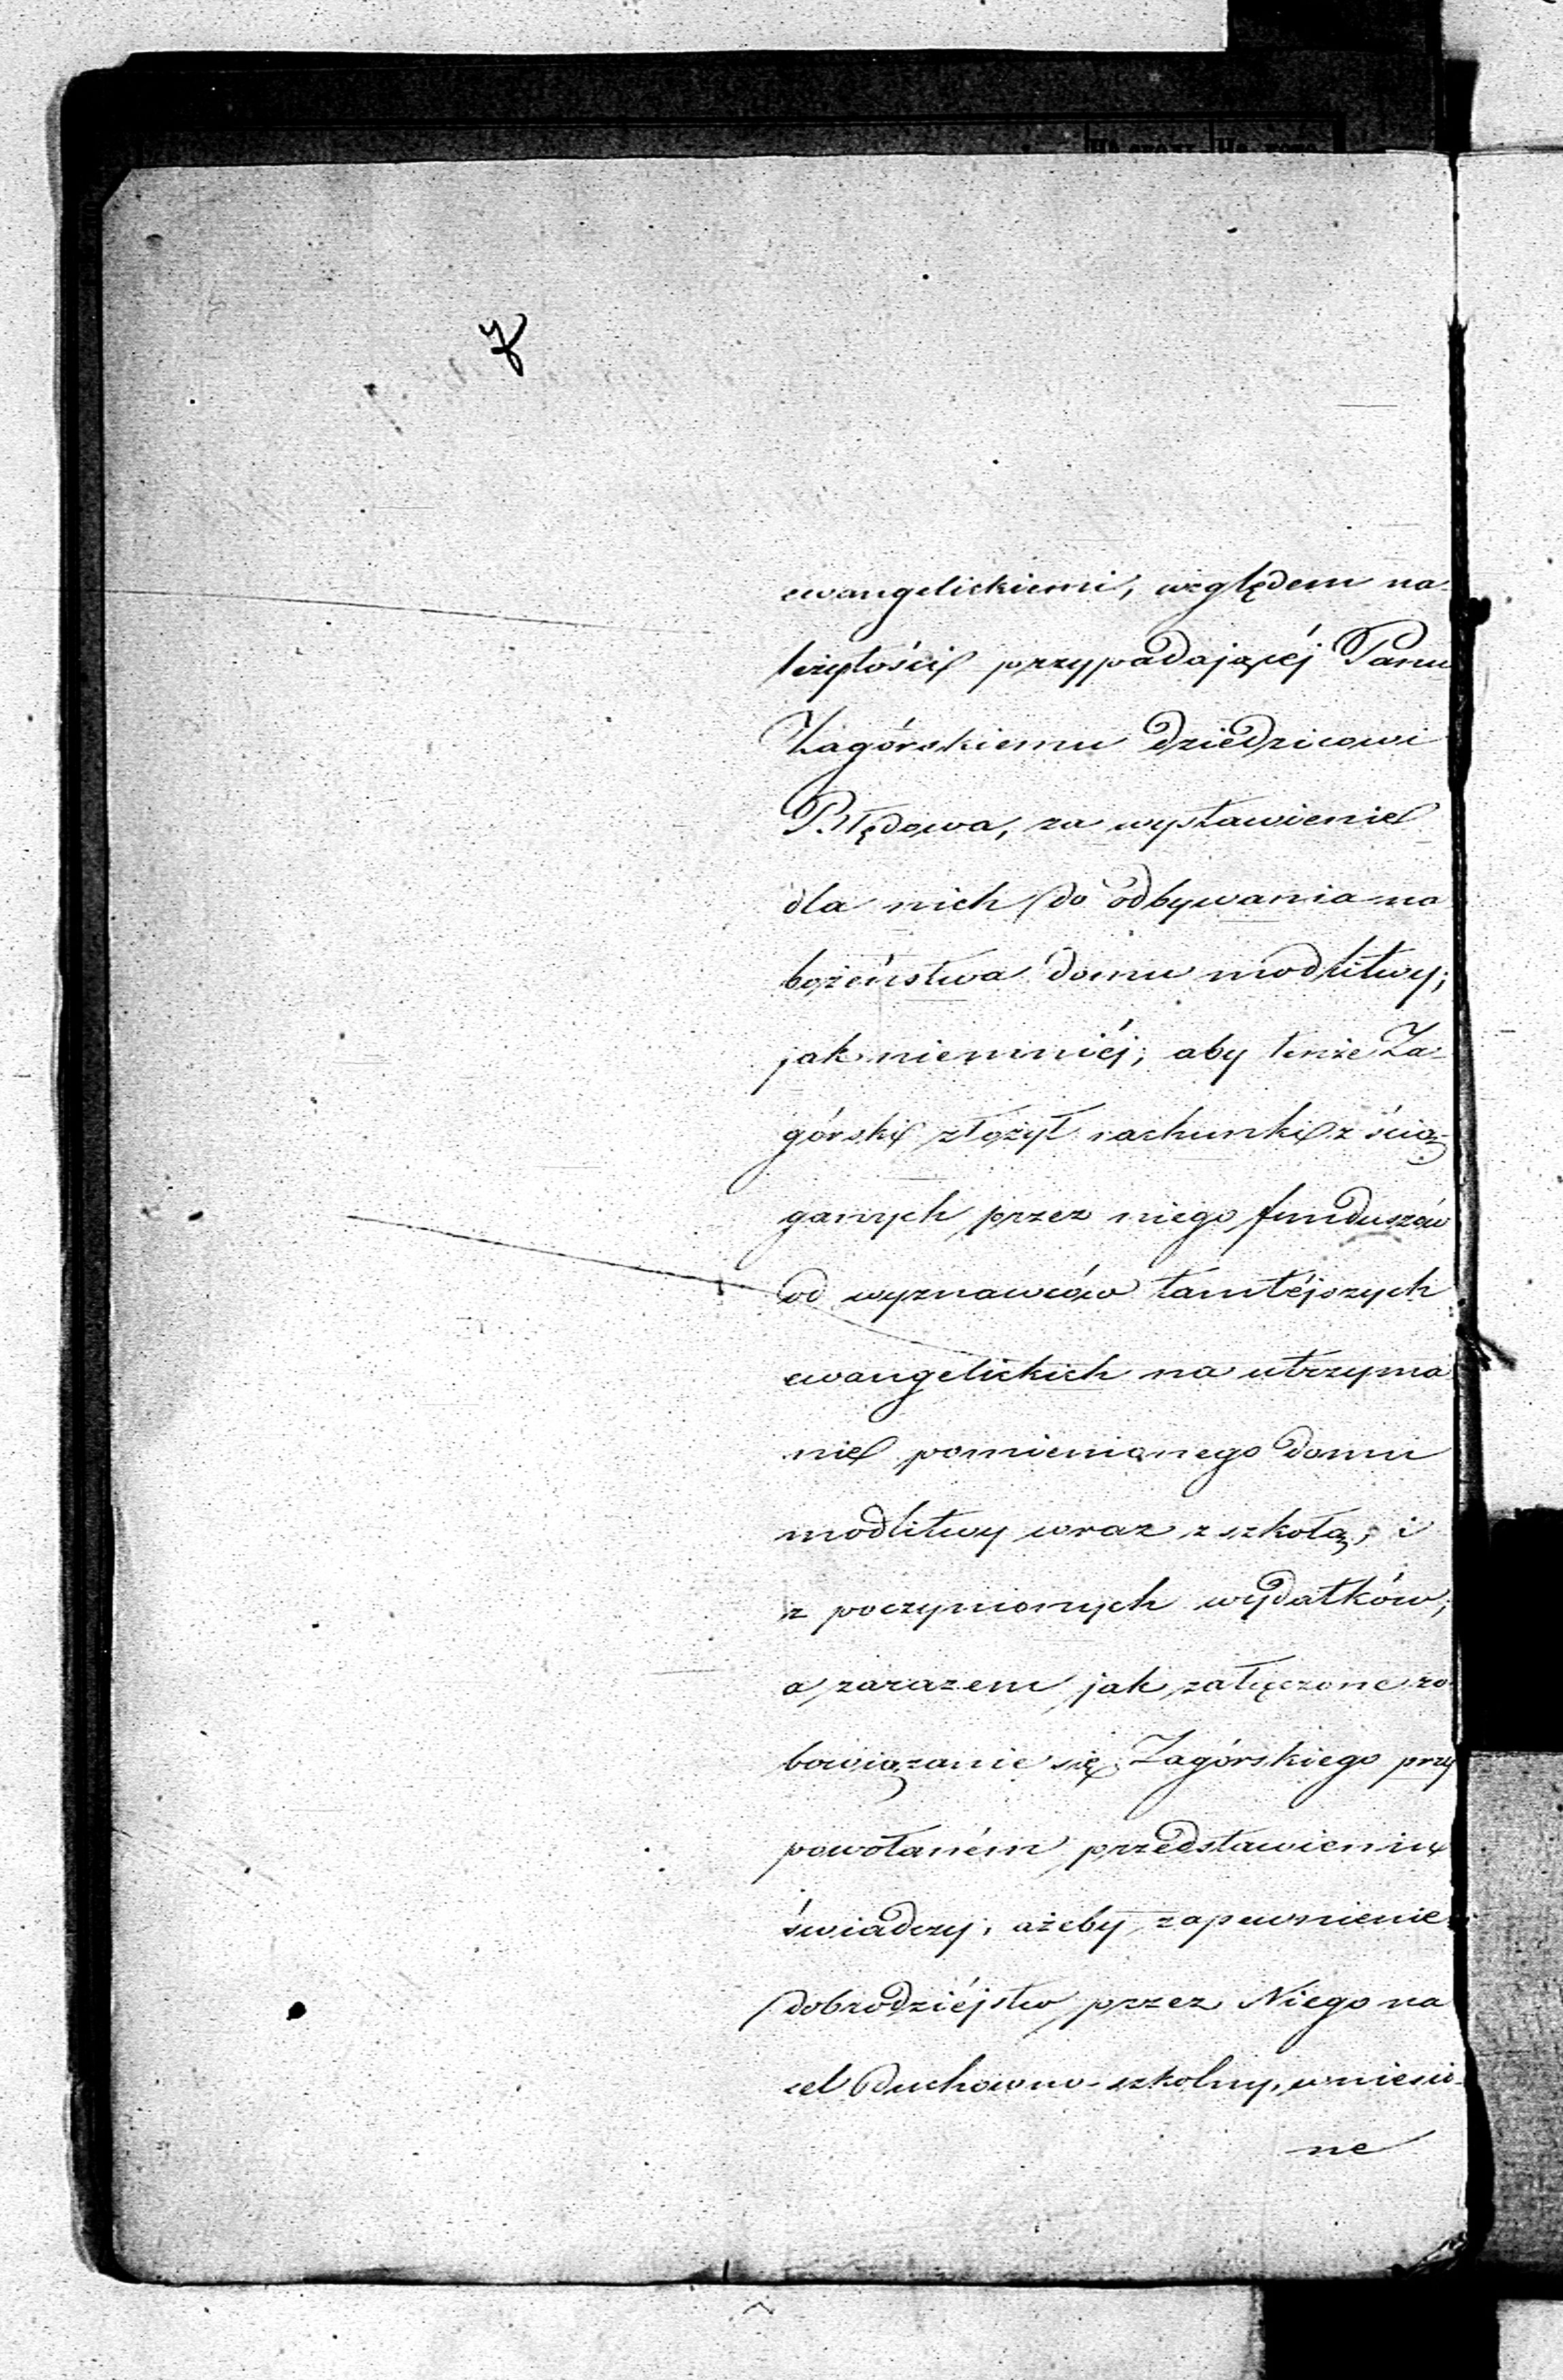 ewangelickiemi, względem na-
leżytości przypadającéj Panu
Zagórskiemu dziedzicowi
Błędowa, za wystawienie
dla nich do odbywania na
bożeństwa domu modlitwy;
jak niemniéj, aby tenże Za-
górski złożył rachunki z ścią-
ganych przez niego funduszów
od wyznawców tamtéjszych
ewangelickich na utrzyma
nie pomienionego domu
modlitwy wraz z szkołą, i
z poczynionych wydatków,
a zarazem jak załączone zo
bowiązanie się Zagórskiego przy
powołaném przedstawieniu
świadczy, ażeby zapewnienie
dobrodziéjstw przez Niego na
cel duchowno-szkolny, wniesio-
ne